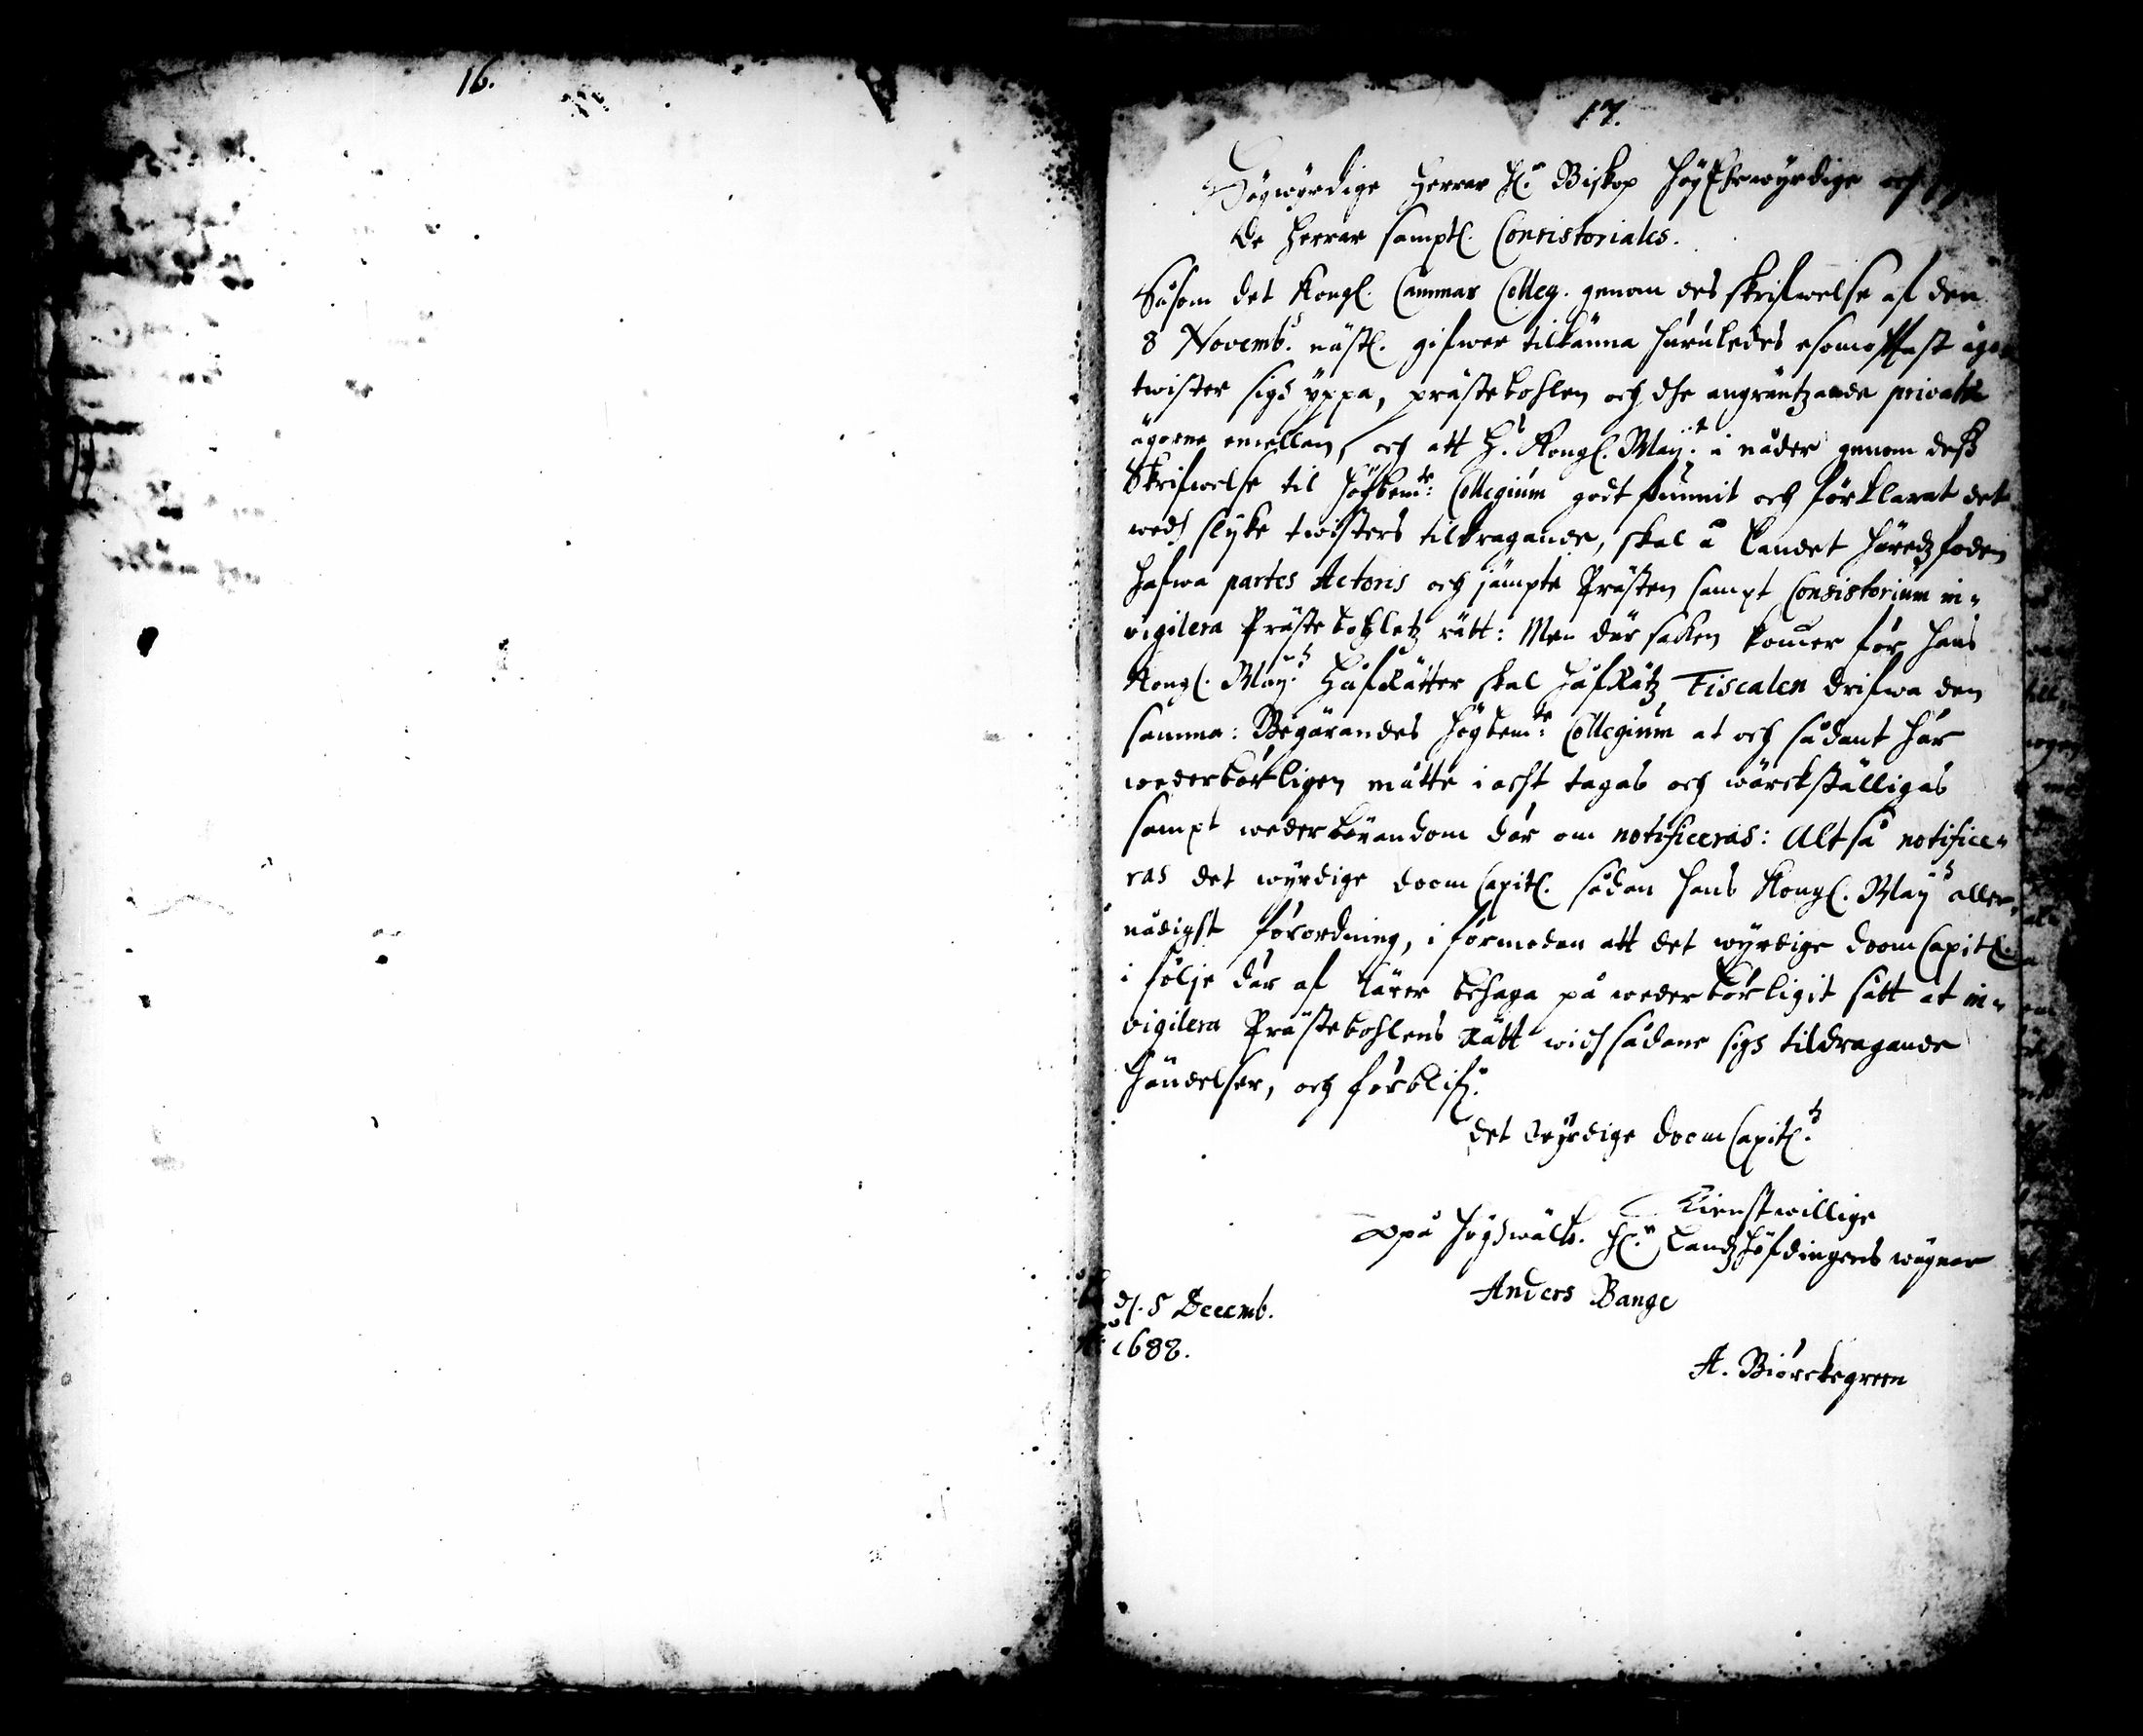 16.
17.
Högwyrdige Herrar H:r Biskop Högährewyrdige och
de Herrar sampt. Consistoriales.
Såsom det Kongl. Cammar Colleg. genom des skrifwelse af den
8 Novemb. näst. gifwer tilkänna huruledes esomoftast ägo
twister sigh yppa, prästebohlen och dhe angräntzande privata
ägorne emellan, och att H.s Kongl. May:t i nåder genom desz
Skrifwelse til Högbem:te Collegium godt funnit och förklarat det
wedh slyke twisters tildragande, skal å Landet häredzfogden
hafwa partes Actoris och jämpte Prästen sampt Consistorium in-
vigilera Prästebohletz rätt: Men där saken kommer för Hans
Kongl. May:tz HåfRätter skal HåfRätz Fiscalen drifwa den
samma: Begärandes Högbem:te Collegium at och sådant här
wederbörligen måtte i acht tagas och wärckställigas
sampt wederbörandom där om notificeras: Altså notifice-
ras det wyrdige doom Capit. sådan Hans Kongl. May:tz aller-
nådigst förordning, i förmodan att det wyrdige doom Capitl.
i följe där af lärer behaga på wederbörligit sätt at in-
vigilera Prästebohlens Rätt widh sådane sigh tildragande
händelser, och förblifr.
det wyrdige doom Capitl:s
Tienstwillige
Opå Högwälb. H:r Landzhöfdingens wägnar
Anders Bange
d. 5 Decemb.
1688.
A. Biörckegreen